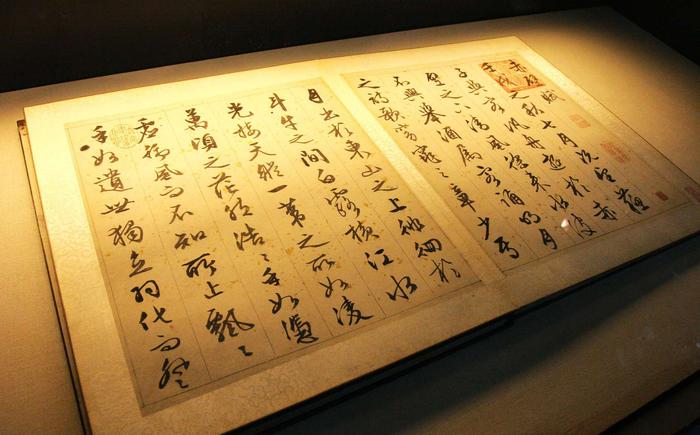 赤壁賦
壬戌之秋七月既望蘇
子與客泛舟遊於赤
壁之下清風徐來水波
不興舉酒屬客誦明月
之詩歌窈窕之章少焉
月出於東山之上徘徊於
斗牛之間白露橫江水
光接天縱一葦之所如凌
萬頃之茫然浩〻乎如憑
虛御風而不知所止飄〻
乎如遺世獨立羽化而登